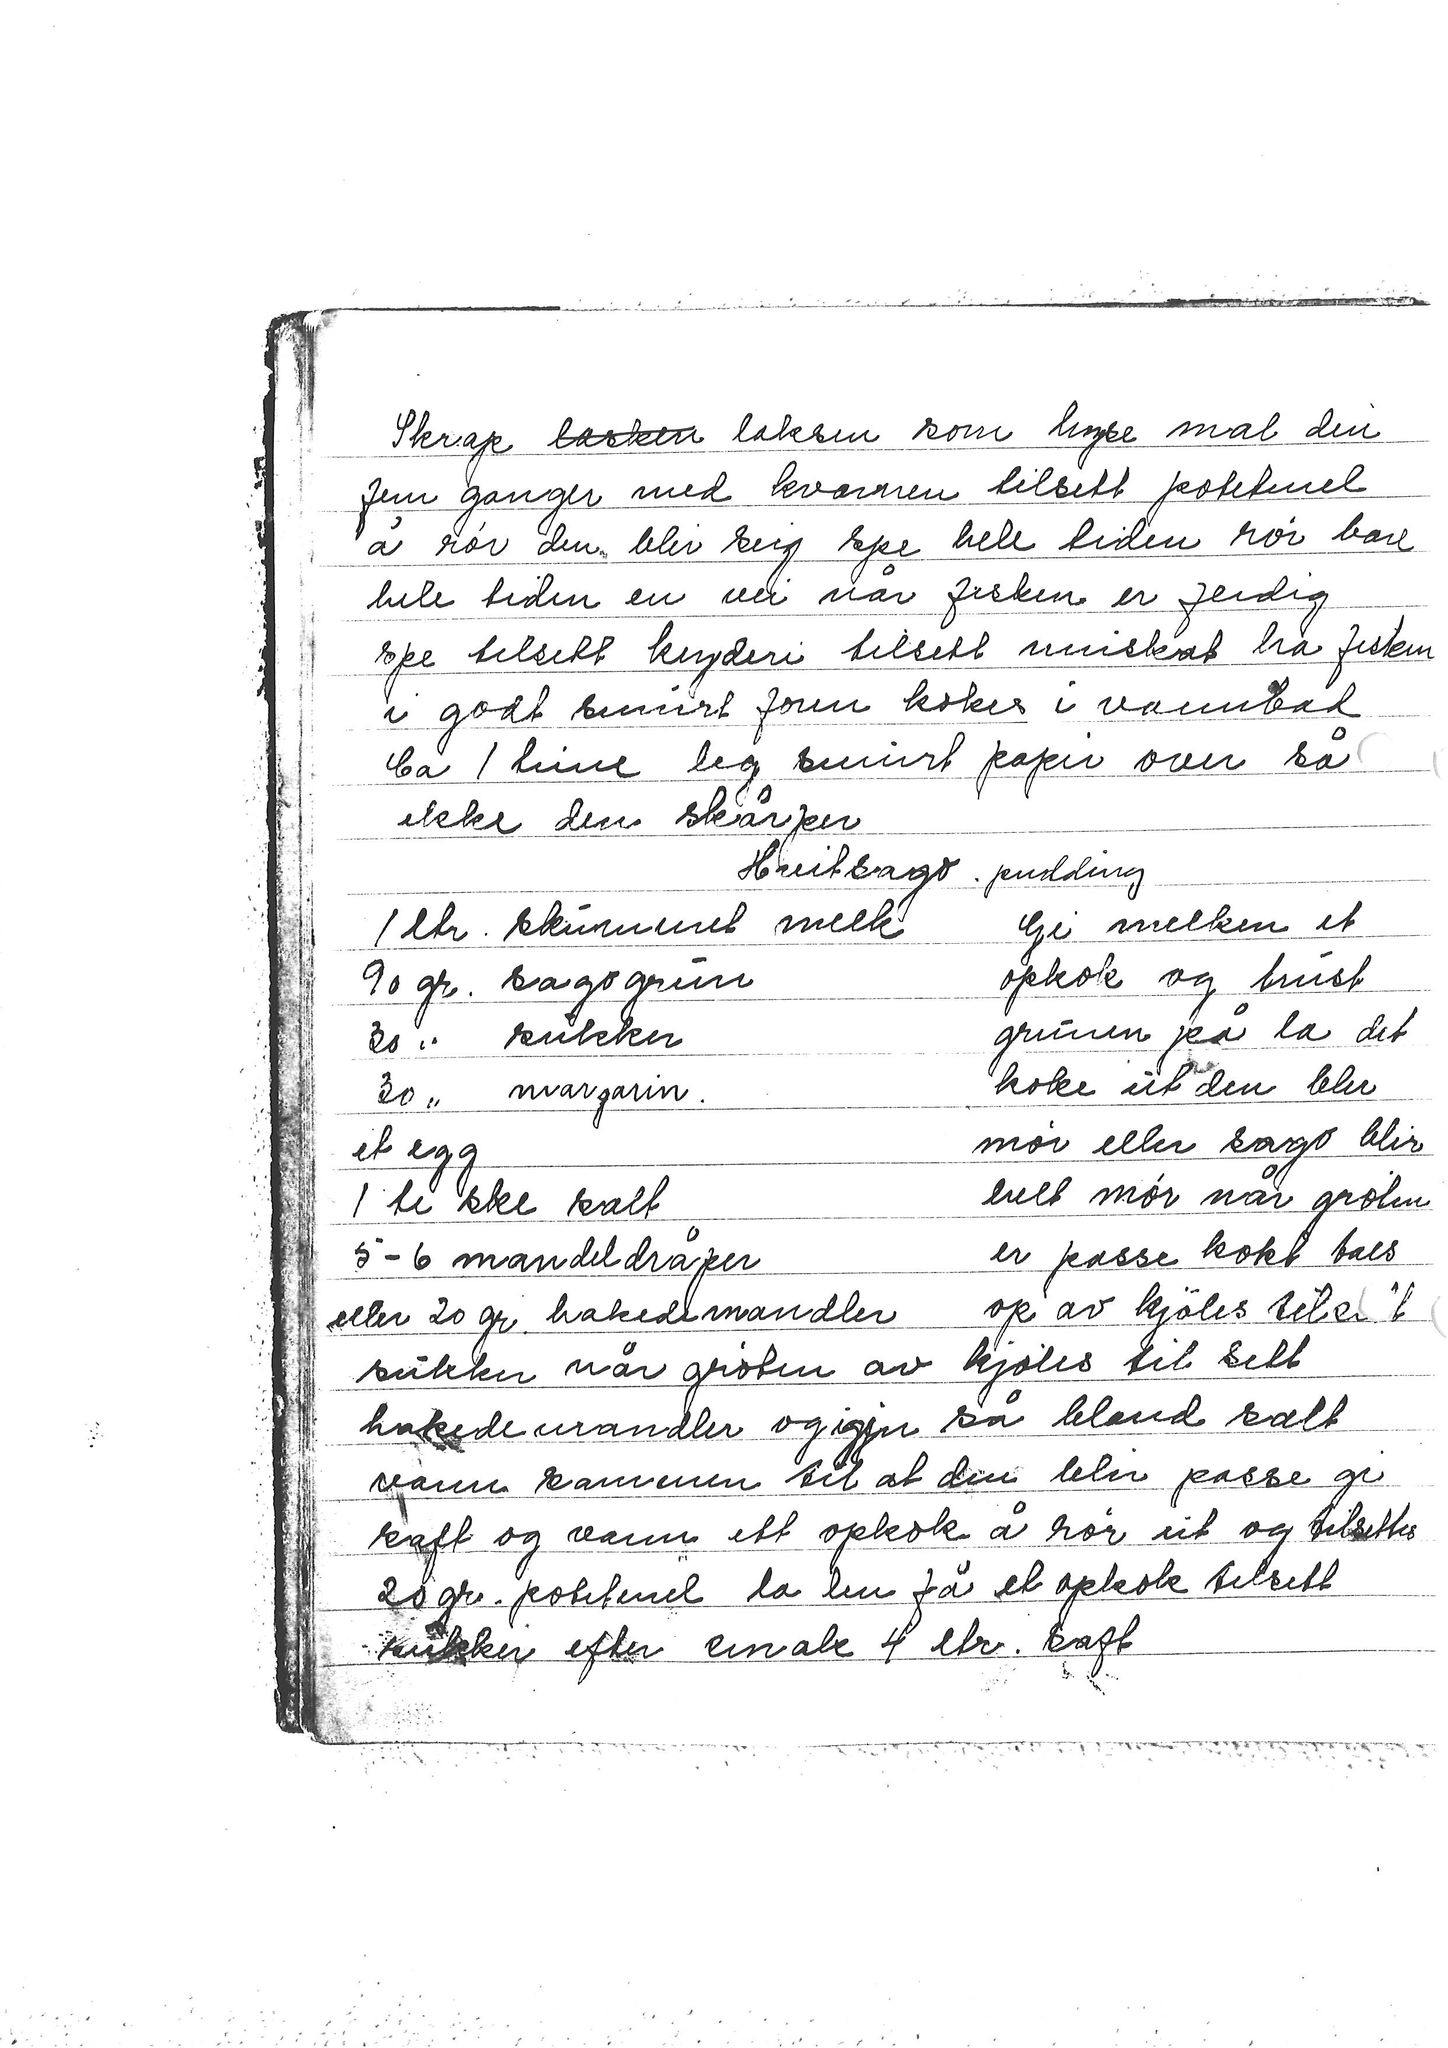 Skrap lasken laksen som hyse mal den
fem ganger med kvarnen tilsett potetmel
å rør den blir seig spe hele tiden rør bare
hele tiden en vei når fisken er ferdig
spe tilsett krydderi tilsett muskat ha fisken
i godt smurt form kokes i vannbad
Ca 1 time leg smurt papir over så
ikke den skårper
Hvitsago. pudding
1 ltr. skummet melk
90 gr. sagogrün
30 " sukker
30 " margarin.
et egg
1 te ske salt
5-6 mandeldråper
eller 20 gr. hakede mandler
Gi melken et
opkok og trust
grünen på la det
koke üt den blir
mør eller sago blir
helt mør når grøten
er passe kokt taes
op av kjøles tilset
sukker når grøten av kjøles til sett
hakede mandler og igjen så bland salt
vann sammen til at den blir passe gi
saft og vann ett opkok å rør üt og tilsettes
20 gr. potetmel la den få et opkok tilsett
sukker efter smak 4 ltr. saft